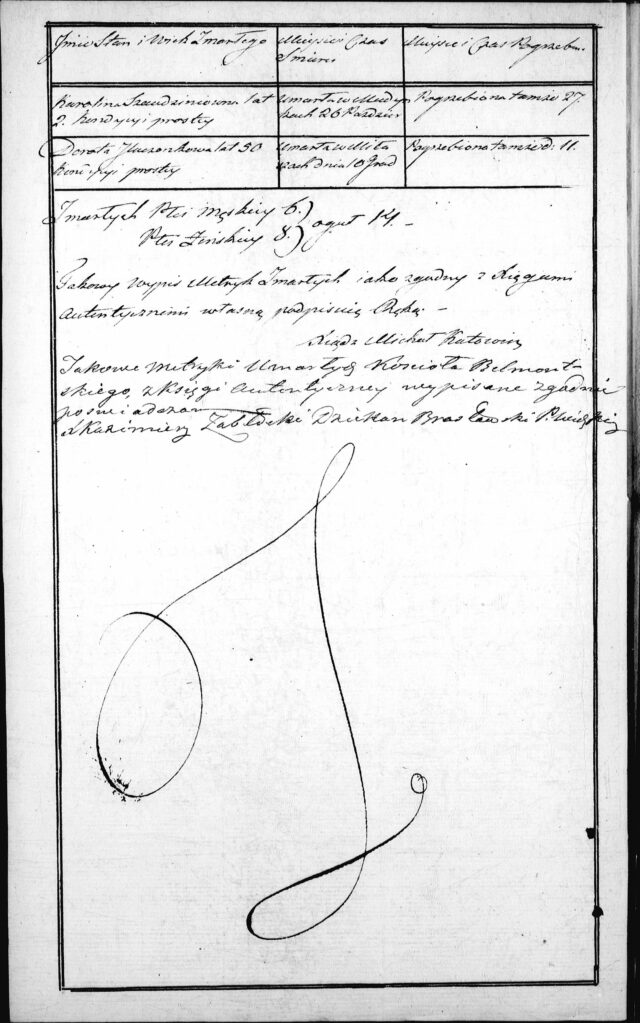 Jmie Stan i Wiek Zmarłego
Mieysce i Czas
Śmierci
Mieysce i Czas Pogrzebu.
Karolina lat
2. kondycyi prostey
Umarła w
26 Paździer
Pogrzebiona tamże 27.
Dorota lat 50
kondycyi prostey
Umarła w
dnia 10 Grud
Pogrzebiona tamże d: 11.
Zmarłych Płci Męskiey 6.)
Płci Żeńskiey 8.) oguł 14. -
Takowy wypis Metryk Zmarłych iako zgodny z Xięgami
Autentycznemi własną podpisuię Ręką. -
Xiądz Michał
Takowe metryki Umarłych Kościoła Belmont-
skiego, z Xsięgi Autentyczney wypisane zgodnie
poswiadczam
X Kazimierz Zabłocki Dziekan Brasławski